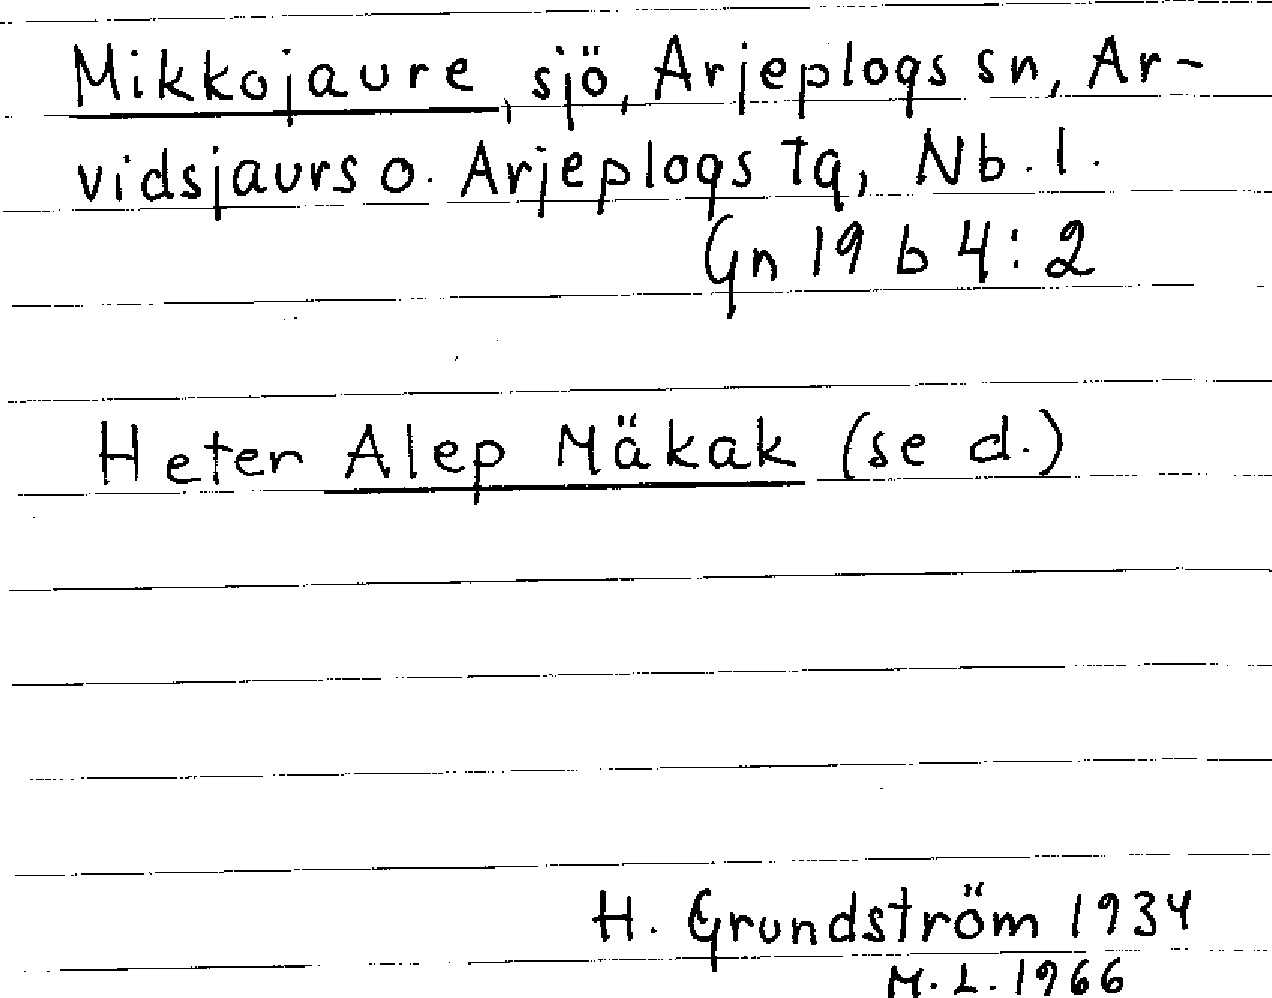 Mikkojaure, sjö, Arjeplogs sn, Ar-
vidsjaurs o. Arjeplogs Tg, Nb. l.
Gn 19 b 4:2
Heter Alep Mäkak (se d.)
H. Grundström 1934
M. L. 1966